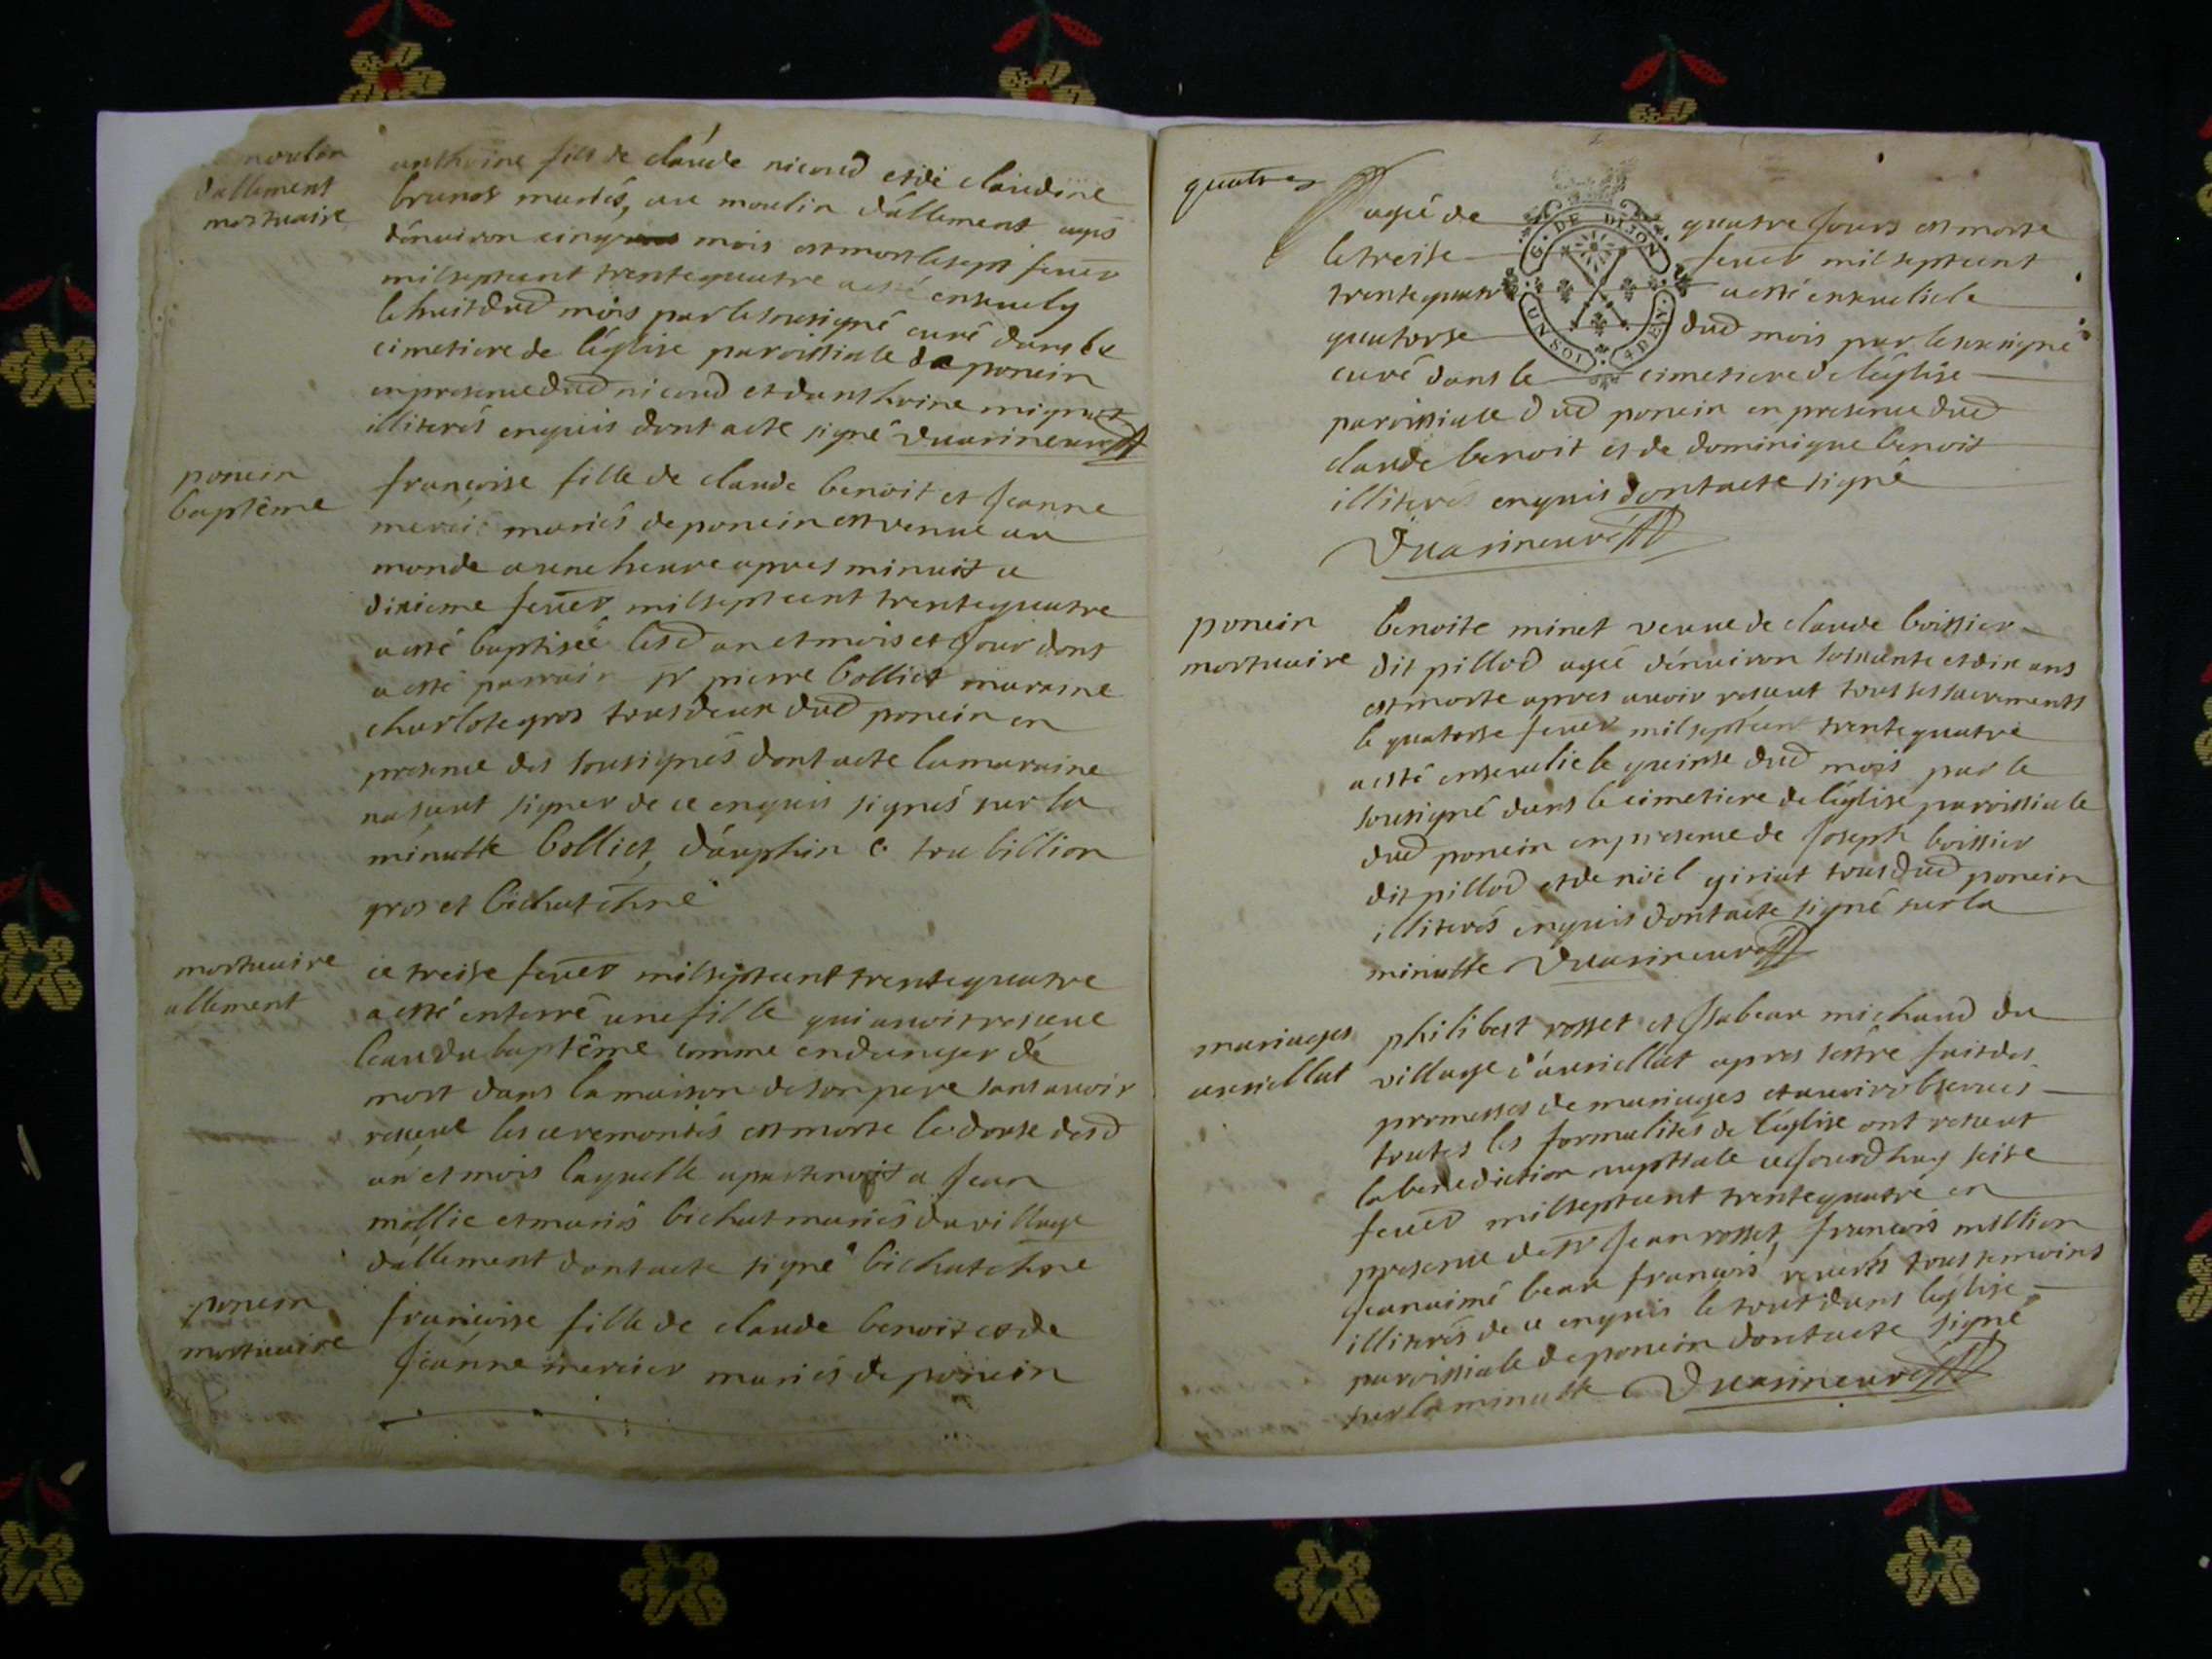 moulin
dallement
mortuaire
anthoine fils de claude nicoud et de claudine
brunos mariés, au moulin d'allement agés
d'enuiron cinq mois est mort le sept feuer
mil sept cent trente quatre a esté enseuely
le huit dud mois par le sousigné curé dans le
cimetiere de l'église paroissiale de poncin
en presence dud nicoud et d'anthoine mignot
illiterés enquis dont acte signé
poncin
baptême
françoise fille de claude benoit et jeanne
mariés de poncin est venue au
monde a une heure apres minuit ce
dixieme feuer mil sept cent trente quatre
a esté baptisée lesd an et mois et jour dont
a esté parrain sr pierre bolliet maraine
charlote gros tous deux dud poncin en
presence des sousignés dont acte la maraine
na seut signer de ce enquis signés sur la
minutte bolliet, dauphin c. troubillion
gros et bichat
mortuaire
allement
ce treise feuer mil sept cent trente quatre
a esté enterré une fille qui auoit receue
leau du baptême comme en danger de
mort dans la maison de son pere sans auoir
receue les ceremonies est morte le douse desd
an et mois laquelle apartenoit a jean
mollie et mariés bichat mariés du village
d'allement dont acte signé bichat
poncin
mortuaire
françoise fille de claude benoit et de
jeanne mercier mariés de poncin
quatre
agée de quatre jours est morte
le treise feuer mil sept cent
trente quatre a esté enseuelie le
quatorse dud mois par le sousigné
curé dans le cimetiere de l'église
paroissiale dud poncin en presence dud
claude benoit et de dominique benoit
illiterés enquis dont acte signé
G. DE DIJON
UN SOL 4 DEN.
poncin
mortuaire
benoite minet veuue de claude boissier
dit pillod agée d'enuiron soixante et dix ans
est morte apres auoir receut tous ses sacrements
le quatorse feuer mil sept cent trente quatre
a esté enseuelie le quinse dud mois par le
sousigné dans le cimetiere de l'église paroissiale
dud poncin en presence de joseph boissier
dit pillod et de noël giriat tous dud poncin
illiterés enquis dont acte signé sur la
minutte
mariages
auriellat
philibert rosset et jsabeau michaud du
village d'auriellat apres sestre fait des
promesses de mariages et auoir obserués
toutes les formalités de l'église ont receut
la benediction nuptiale ce jourdhuy seise
feuer mil sept cent trente quatre en
presence de sr jean rosset, françois million
jean aimé beau françois tous temoins
illiterés de ce enquis le tout dans l'église
paroissiale de poncin dont acte signé
sur la minutte